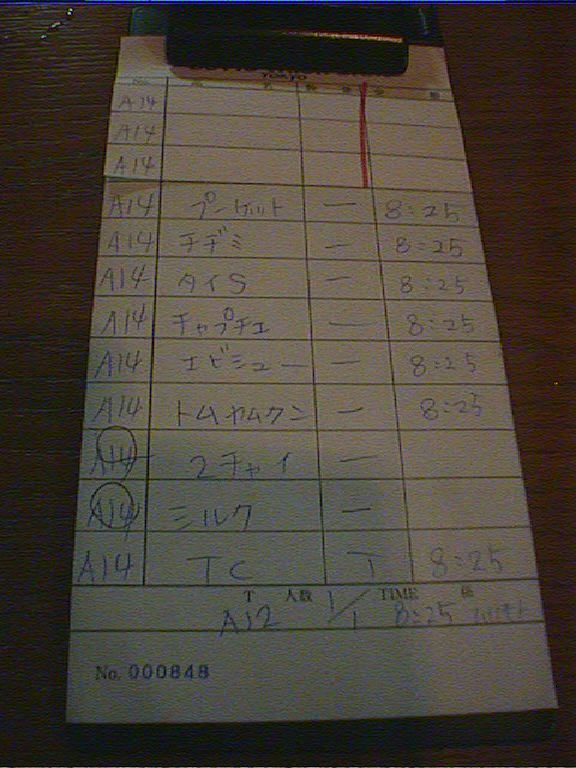 TOKYO
No. 品 名 数 量 金 額
A14
A14
A14
A14 プーケット 一 8:25
A14 チヂミ 一 8:25
A14 タイS 一 8:25
A14 チャプチェ 一 8:25
A14 エビシュー 一 8:25
A14 トムヤムクン 一 8:25
A14 2チャイ 一
A14 ミルク 一
A14 TC T 8:25
T 人数 TIME 係
A12 1/1 8:25
No. 000848